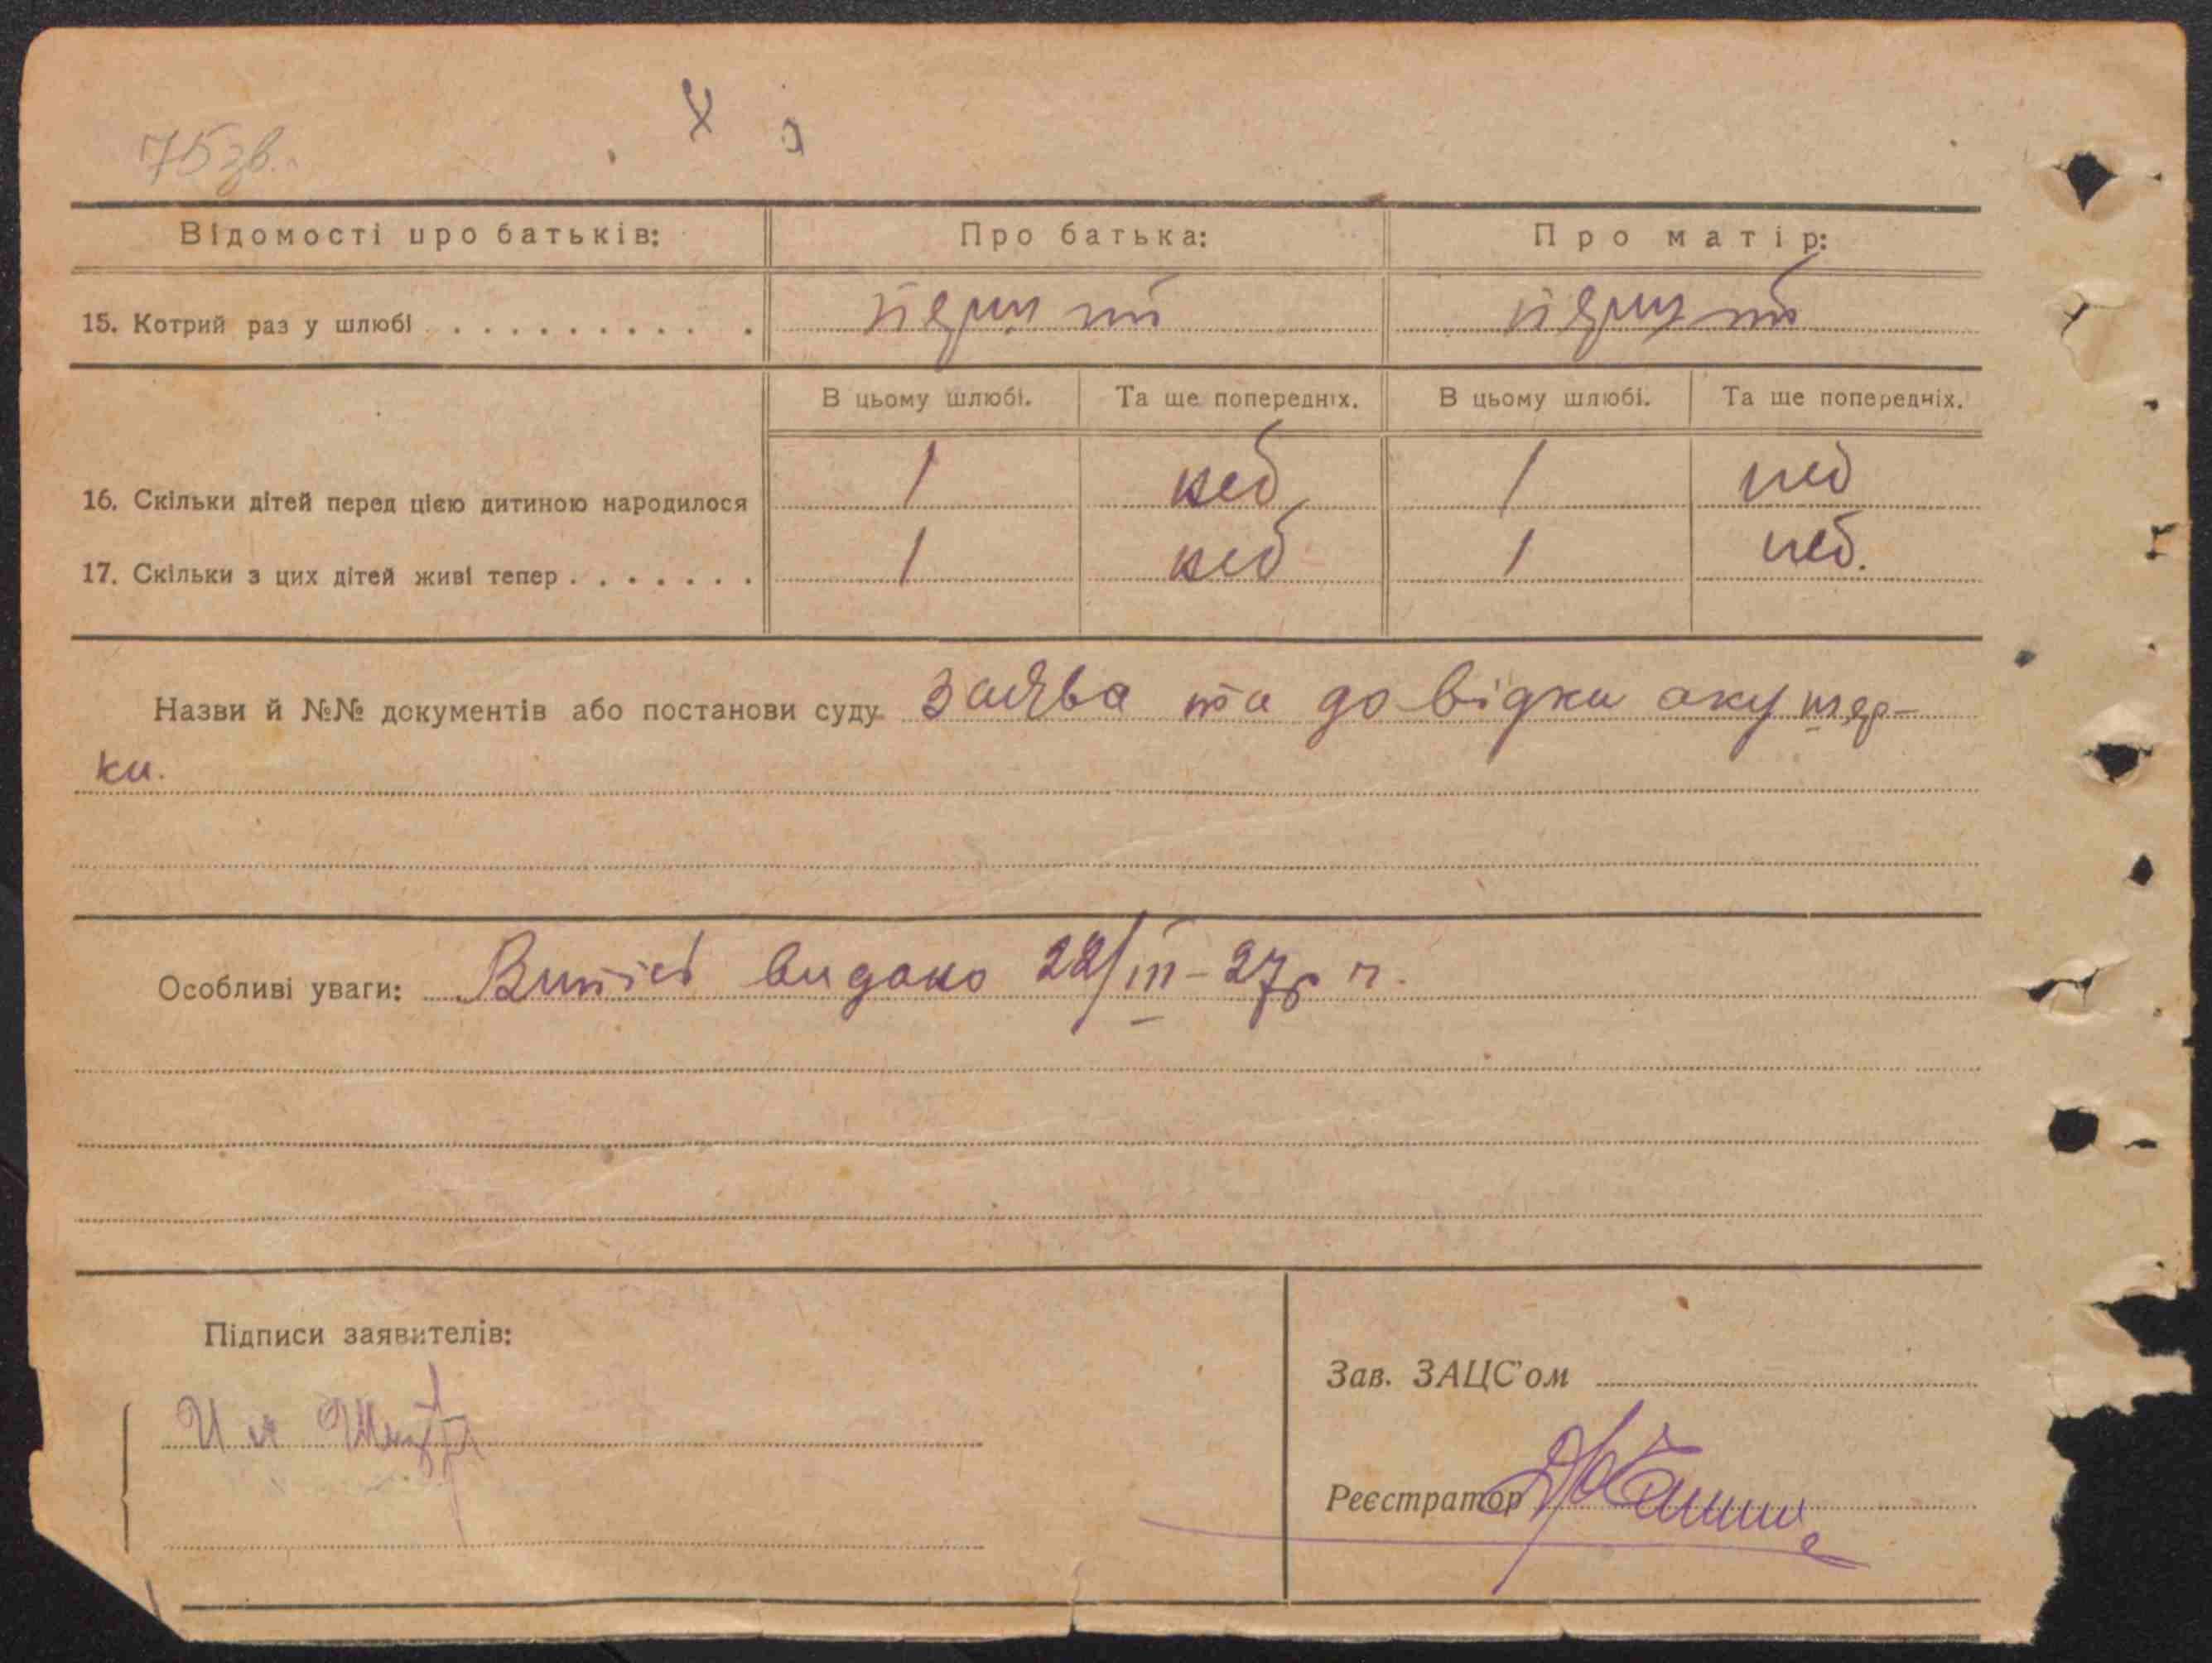 75 зв.
Відомості про батьків: Про батька: Про матір:
15. Котрий раз у шлюбі . . . . . . . . . . .
В цьому шлюбі. Та ще попередніх. В цьому шлюбі. Та ще попередніх.
16. Скільки дітей перед цією дитиною народилося 1 неб 1 неб
17. Скільки з цих дітей живі тепер . . . . . . . 1 неб 1 неб.
Назви й №№ документів або постанови суду заява та довідки акушер-
ки.
Особливі уваги: Витяг видано 22/III-27 р.
Підписи заявителів:
Зав. ЗАЦС'ом
Реєстратор